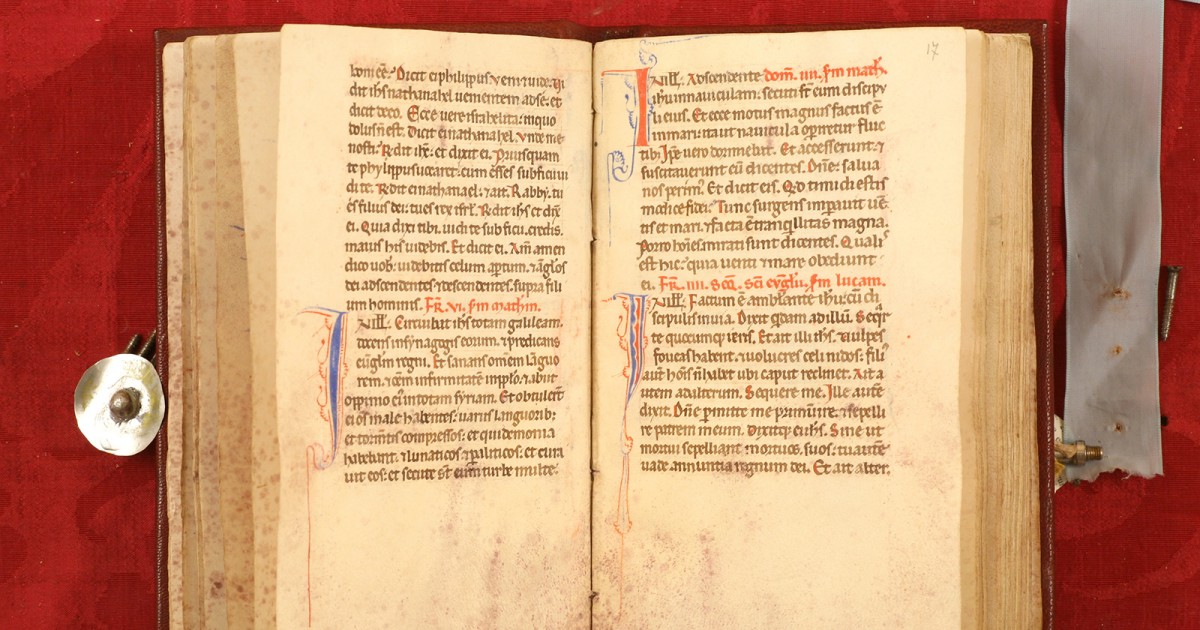 boni eē. Dicit ei philippus. veni ⁊ uide. Ui
dit ihs nathanahel uenientem ad se. et
dicit de eo. Ecce vere israhelita. in quo
dolus n̄ est. Dicit ei nathanahel. Vnde me
nosti. R̄dit ihc. et dixit ei. Priusquam
te phylippus uocaret. cum esses sub ficu ui
di te. R̄dit ei nathanael. ⁊ ait. Rabby. tu
es filius dei. tu es rex isrl̄. R̄dit ihs et dix̄
ei. Quia dixi tibi. uidi te sub ficu. credis.
maius his uidebis. Et dicit ei. Am̄ amen
dico uob. uidebitis celum apertum. ⁊ angl̄os
dei ascendentes ⁊ descendentes. supra fili
um hominis. Fr̄. vi. s̄m math̄m.
N ill̄. Circuibat ihs totam galileam.
docens in synagogis eorum. ⁊ predicans
eūglm̄ regni. Et sanans omēm languo
rem. ⁊ oēm infirmitatē in pplo. ⁊ abiit
oppinio ei in totam syriam. Et obtulert̄
ei oēs male habentes. uariis languorib.
et tormtis compressos. et qui demonia
habebant. ⁊ lunaticos. ⁊ paliticos. et cura
uit eos. et secute st̄ eum turbe multe.
17
IN ill̄. Ascendente dom̄. iiii. s̄m math.
ihu in nauiculam. secuti st̄ eum discipu
li eius. Et ecce motus magnus factus ē
in mari. ita ut nauicula operiretur fluc
tib. Ipse uero dormiebat. Et accesserunt. ⁊
suscitauerunt eū dicentes. Dn̄e. salua
nos perim̄. Et dicit eis. Qd̄ timidi estis
modice fidei. Tunc surgens impauit uē
tis et mari. ⁊ facta ē tranquillitas magna.
Porro hoīes mirati sunt dicentes. Qualis
est hic. quia uenti ⁊ mare obediunt
ei. Fr̄. iiii. Scd̄. sc̄i eūglii. s̄m lucam.
IN ill̄. Factum ē ambłante ihu. cū di
scipulis in uia. Dixit qdam ad illum. Seqr
te quocumq ieris. Et ait illi ihs. ⁊ uulpes
foueas habent. ⁊ uolucres celi nidos. fili
aut̄ hoīs n̄ habet ubi caput reclinet. Ait a
utem ad alterum. Sequere me. Ille autē
dixit. Dn̄e pmitte me prim̄ ire. ⁊ sepelli
re patrem meum. Dixitq ei ihs. Sine ut
mortui sepelliant mortuos. suos. tu autē
uade annuntia regnum dei. Et ait alter.